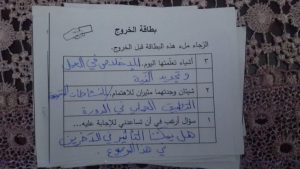 بطاقة الخروج
الرجاء ملء هذه البطاقة قبل الخروج.
٣ أشياء تعلمتها اليوم. الإخلاص في العمل
و تجديد النية
٢ شيئان وجدتهما مثيران للاهتمام. النشاطات
التطبيق في الدورة
١ سؤال أرغب في أن تساعدني للإجابة عليه...
هل يمكننا التأثير في الآخرين
في هذا الموضوع